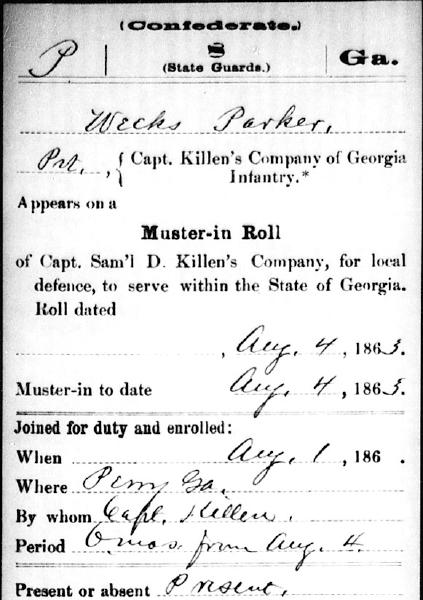 (Confederate.)
P 8 Ga.
(State Guards.)
Weeks Parker,
Prt., { Capt. Killen's Company of Georgia
Infantry.*
Appears on a
Muster-in Roll
of Capt. Sam'l D. Killen's Company, for local
defence, to serve within the State of Georgia.
Roll dated
Aug. 4, 1863.
Muster-in to date Aug. 4, 1863.
Joined for duty and enrolled:
When Aug. 1, 186 .
Where Perry Ga.
By whom Capt. Killen.
Period 6 mos. from Aug. 4.
Present or absent Present.